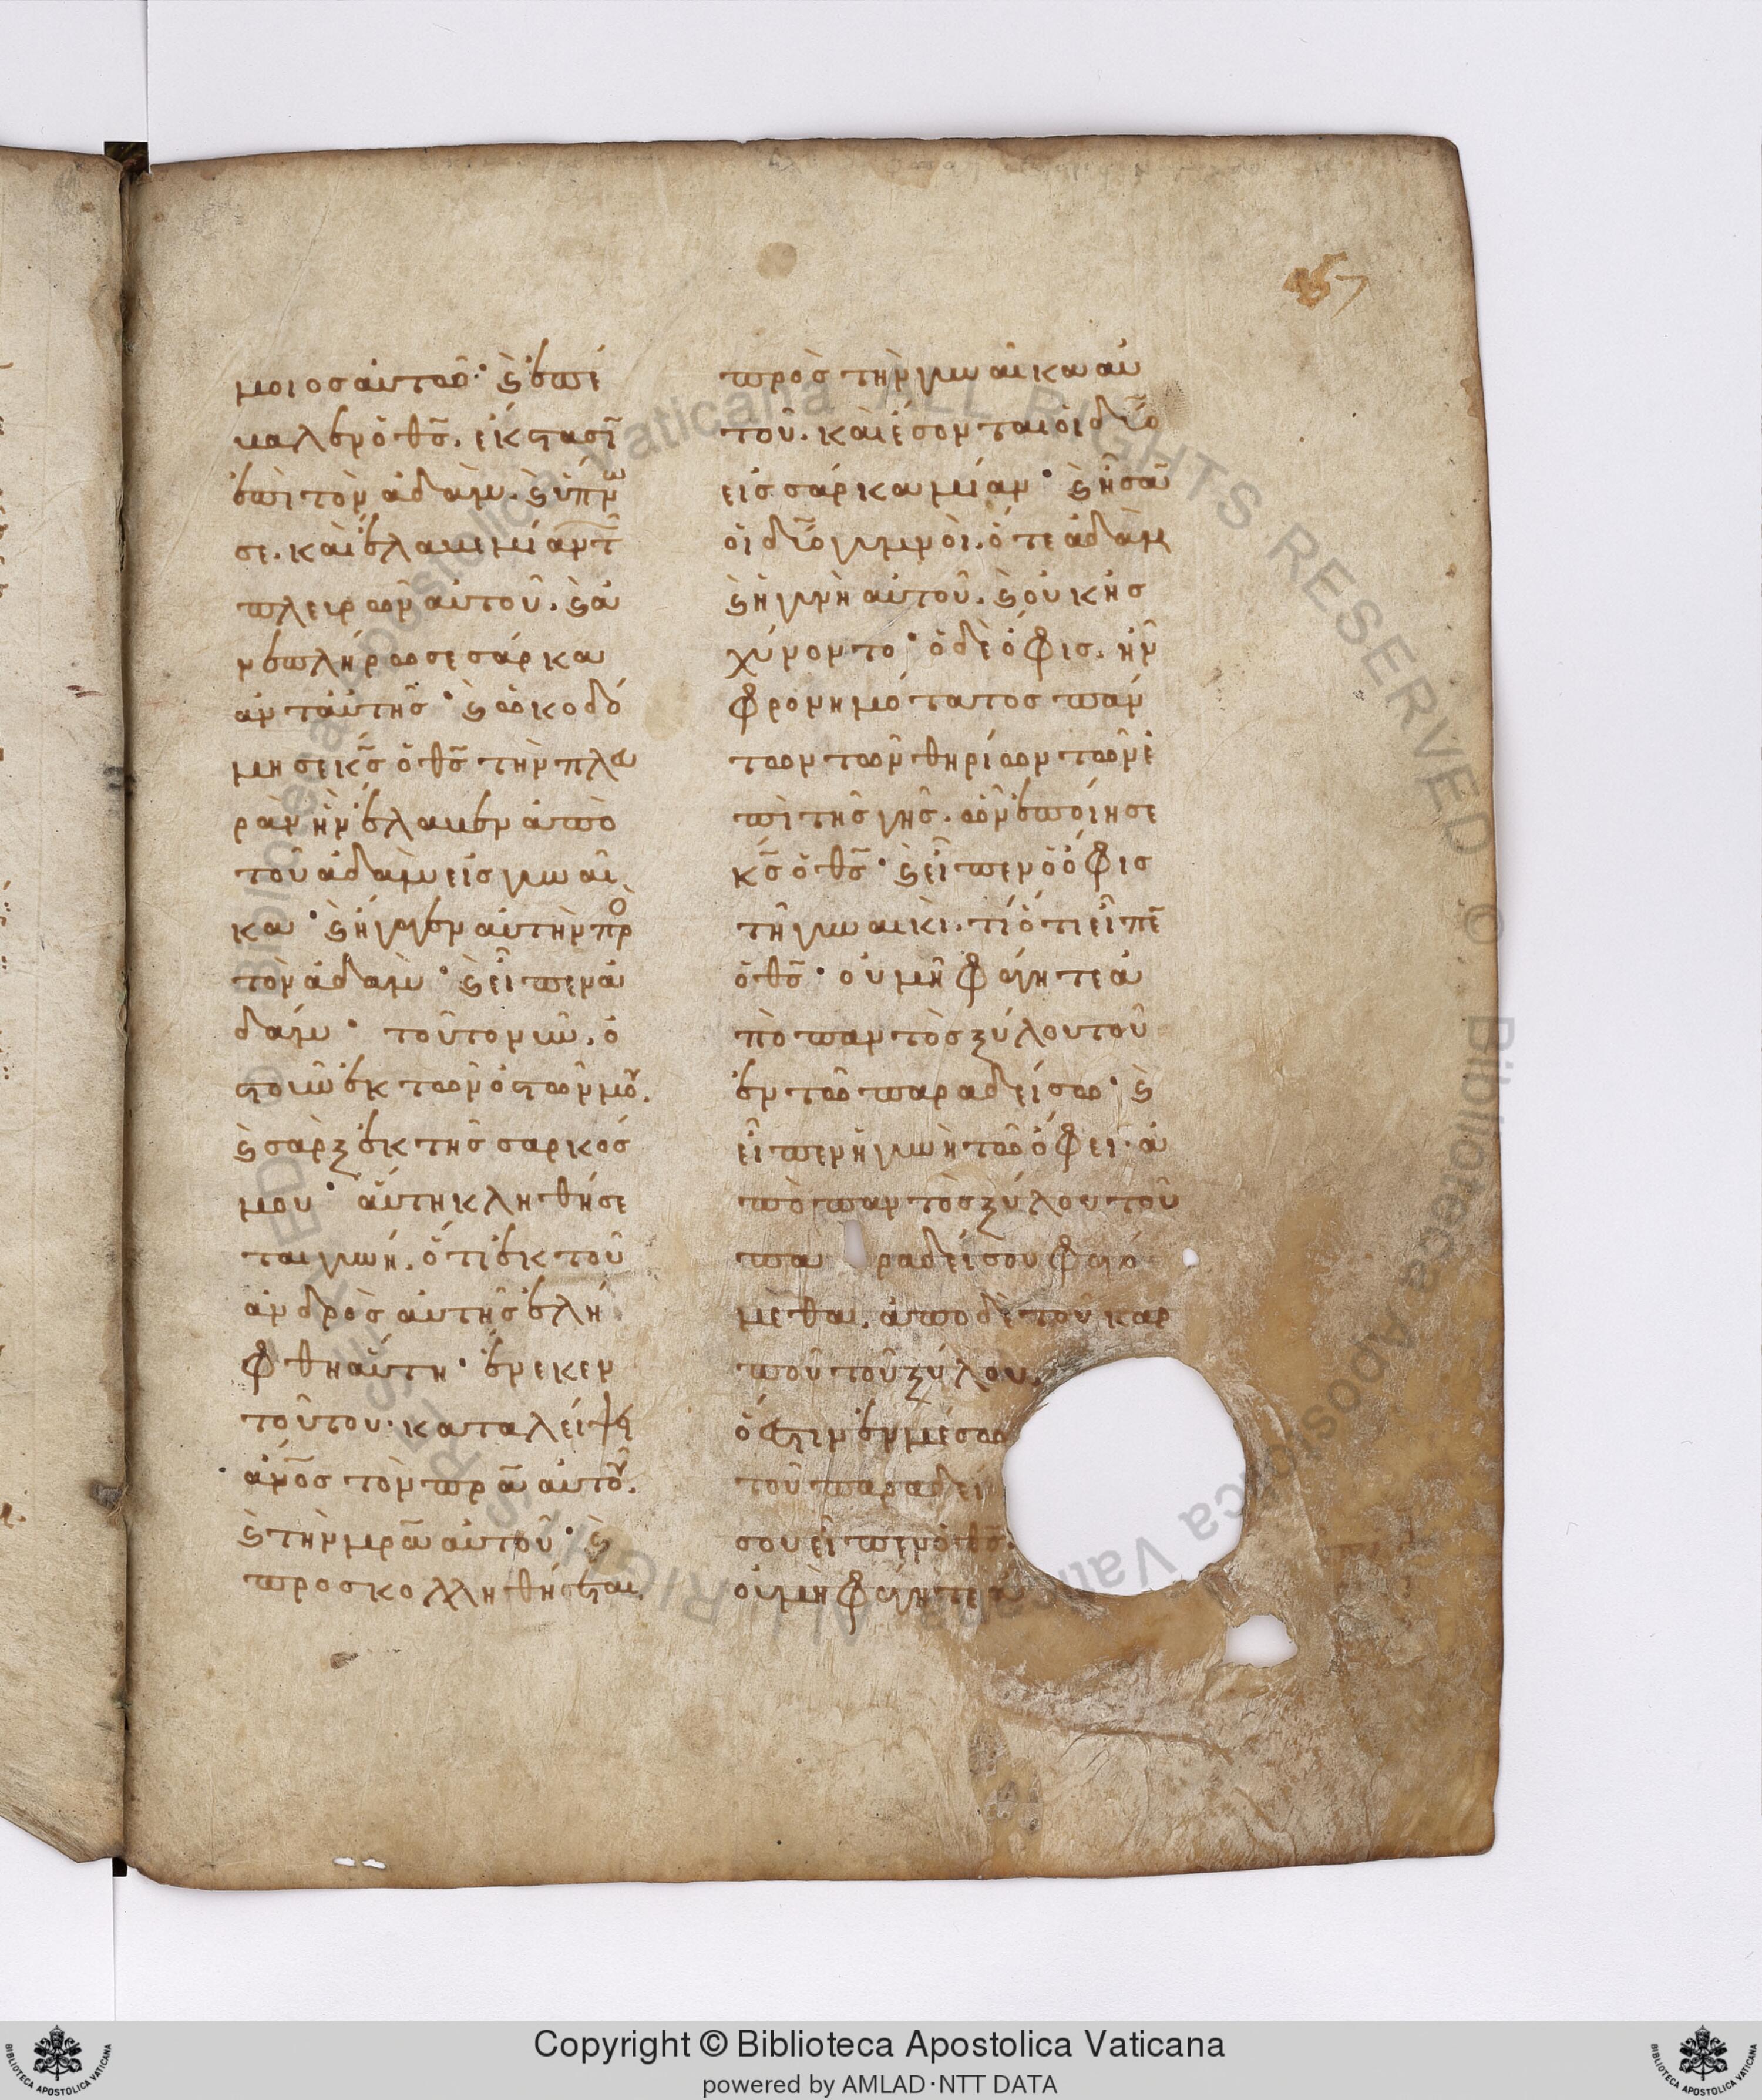 μοιοσ αὐτῶ· ϗ ἐπέ
βαλεν ὁ θ̅ς̅. ἔκστασῑ
ἐπὶ τὸν ἀδάμ. ϗ ὕπνω
σε. καὶ ἔλαβε μίαν τ̅
πλευρῶν αὐτοῦ. ϗ ἀ
νεπλήρωσε σάρκα
ἀντ' αὐτῆς· ϗ ὠκοδό
μησε κ̅ς̅ ὁ θ̅ς̅ τὴν πλευ
ρὰν ἣν ἔλαβεν ἀπὸ
τοῦ ἀδὰμ εἰς γυναῖ
κα· ϗ ἤγαγεν αὐτὴν πρὸ
τὸν ἀδάμ· ϗ εἶπεν ἀ
δάμ· τοῦτο νῦν. ὀ
στοῦν ἐκ τῶν ὀστῶν μου.
ϗ σὰρξ ἐκ τῆς σαρκός
μου· αὕτη κληθήσε
ται γυνή. ὅτι ἐκ τοῦ
ἀνδρὸς αὐτῆς ἐλή
φθη αὕτη· ἕνεκεν
τούτου· καταλείψει
ἄν̅ο̅ς̅ τὸν π̅ρ̅α̅ αὐτοῦ.
ϗ τὴν μ̅ρ̅α̅ αὐτοῦ· ϗ
προσκολληθήσεται
πρὸς τὴν γυναῖκα αὐ
τοῦ. καὶ ἔσονται οἱ δύο
εἰς σάρκα μίαν· ϗ ἦσα̅
οἱ δύο γυμνοὶ. ὅ τε ἀδὰμ
ϗ ἡ γυνὴ αὐτοῦ. ϗ οὐκ ἠσ
χύνοντο· ὁ δὲ ὄφις. ἦν
φρονημότατος πάν
των τῶν θηρίων τῶν ἐ
πὶ τῆς γῆς. ὧν ἐποίησε
κ̅ς̅ ὁ θ̅ς̅· ϗ εἶπεν ὁ ὄφις
τῆ γυναικὶ. τί ὅτι εἶπε̅
ὁ θ̅ς̅· οὐ μὴ φάγητε ἀ
πὸ παντὸς ξύλου τοῦ
ἐν τῶ παραδείσω· ϗ
εἶπεν ἡ γυνὴ τῶ ὄφει· ἀ
πὸ παντὸς ξύλου τοῦ
παραδείσου φαγό
μεθα. ἀπο δὲ τοῦ καρ
ποῦ τοῦ ξύλου.
ὅ ἐστιν ἐν μέσω
τοῦ παραδεί
σου εἶπεν ὁ θ̅ς̅.
οὐ μὴ φάγητε ἀ